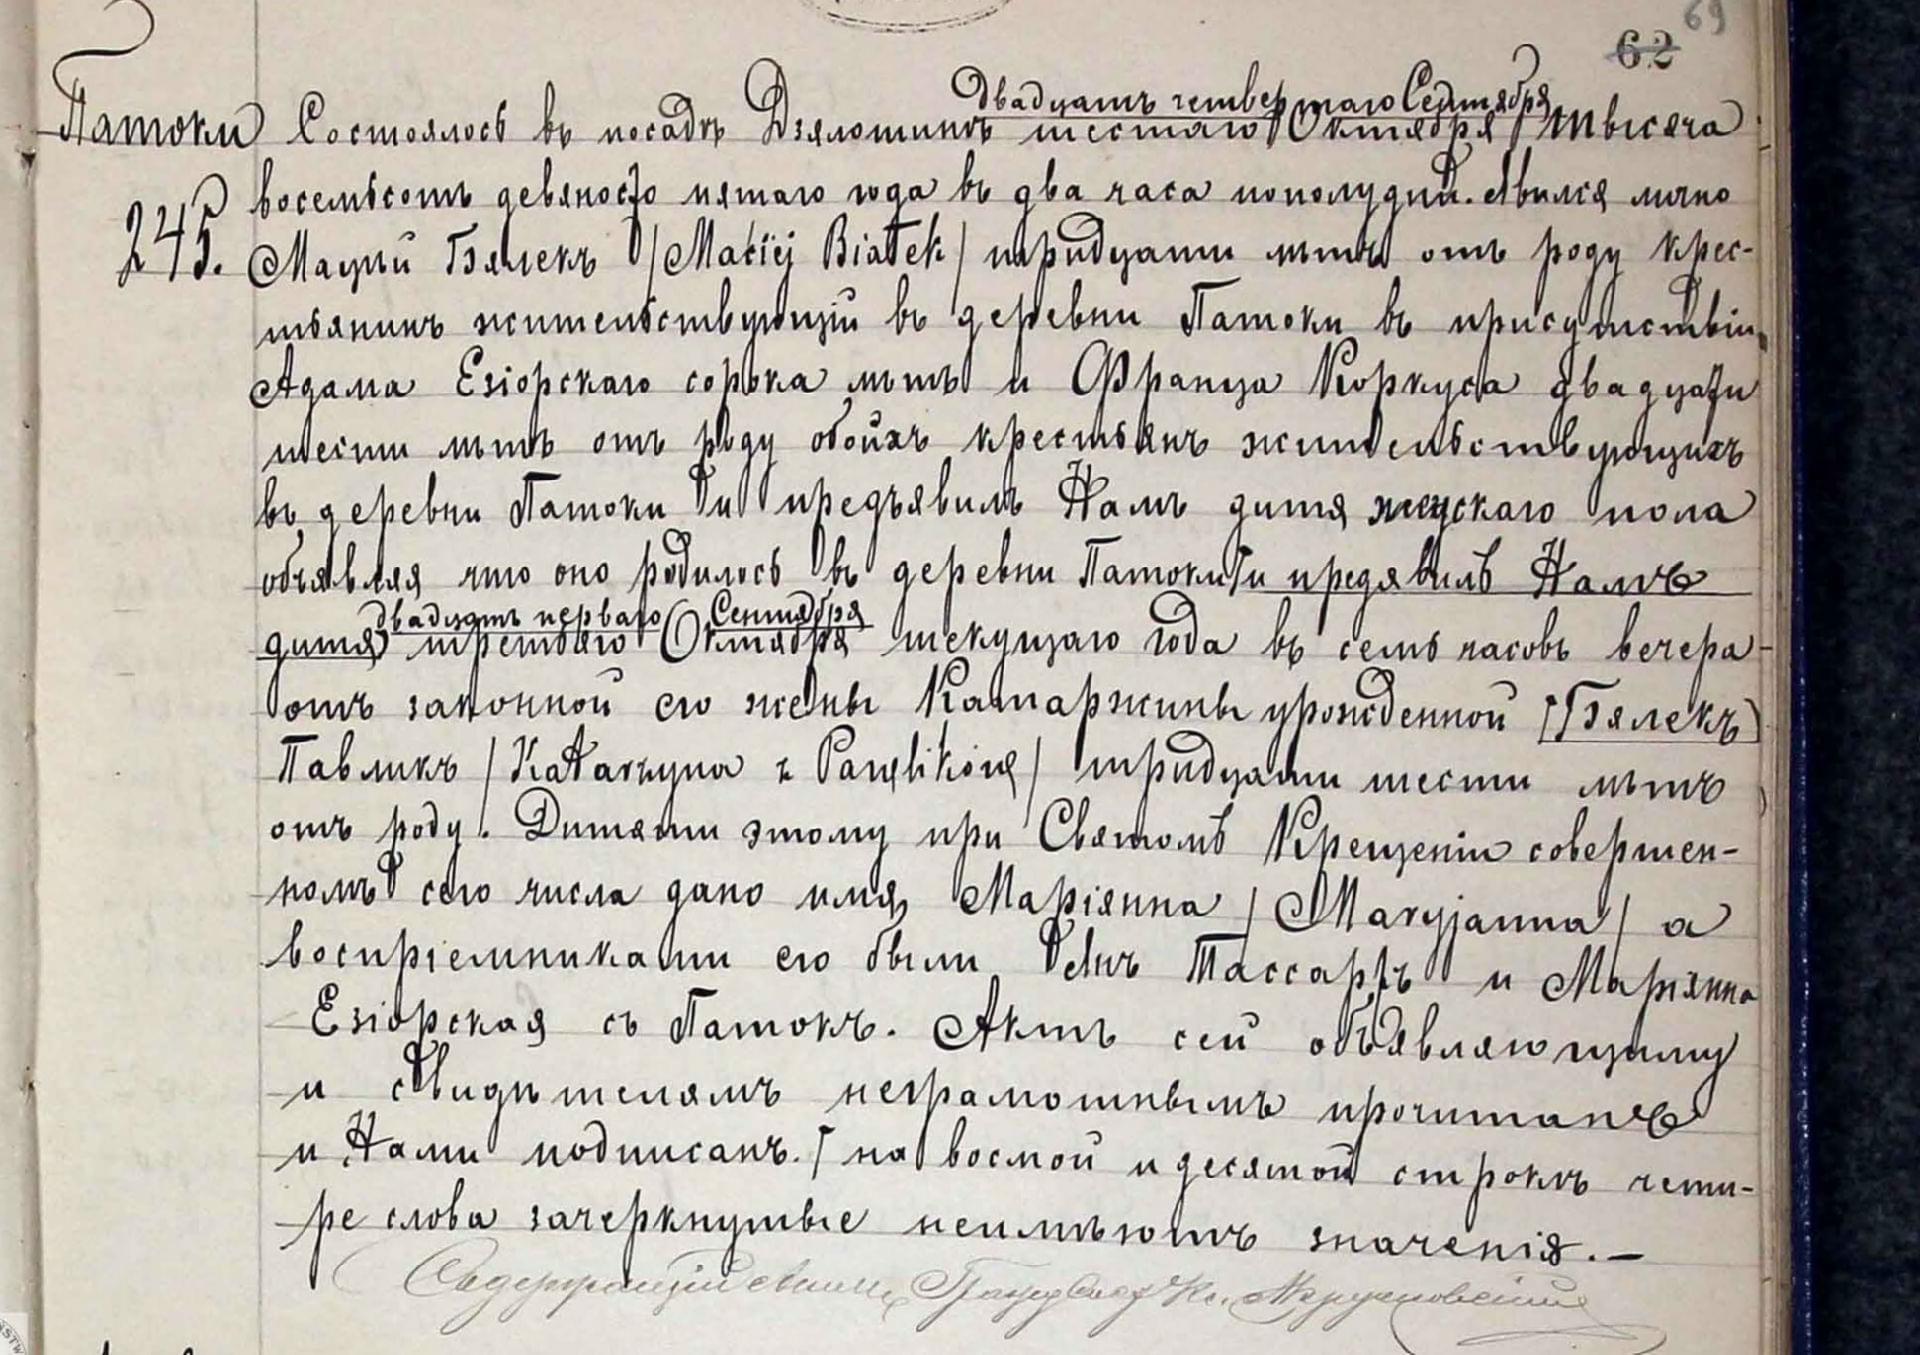 69
62
двадцать четвертаго Сентября
Патоки Состоялось въ посадѣ Дзялошинѣ шестаго Октября тысяча
245. восемьсотъ девяносто пятаго года въ два часа пополудни. Явился лично
Мацѣй Бялекъ /Maciej Białek/ тридцати лѣтъ отъ роду крес-
тьянинъ жительствующій въ деревни Патоки въ присутствіи
Адама Езіорскаго сорока лѣтъ и Франца Коркуса двадцати
шести лѣтъ отъ роду обоихъ крестьянъ жительствующихъ
въ деревни Патоки и предъявилъ Намъ дитя женскаго пола
объявляя что оно родилось въ деревни Патоки и предявилъ Намъ
двадцать перваго Сентября
дитя третьяго Октября текущаго года въ семь часовъ вечера
отъ законной его жены Катаржины урожденной Бялекъ
Павликъ /Katarzyna z Pawlików/ тридцати шести лѣтъ
отъ роду. Дитяти этому при Святомъ Крещеніи совершен-
номъ сего числа дано имя Маріянна /Maryjanna/ а
воспріемниками его были Тассаръ и Маріянна
Езіорская съ Патокъ. Актъ сей объявляющиму
и свидѣтелямъ неграмотнымъ прочитанъ
и Нами подписанъ. / на восмой и десятой строкѣ чети-
ре слова зачеркнутые неимѣютъ значенія. —
Содержащій Акты